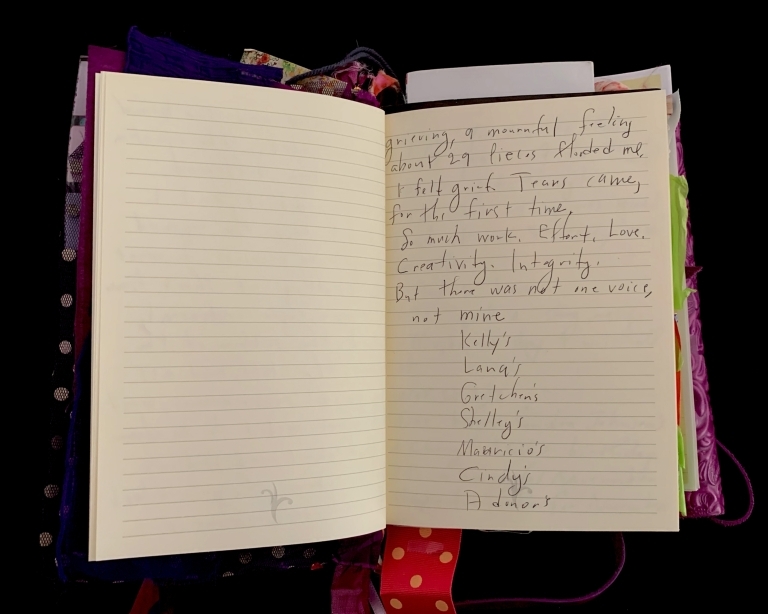 grieving, a mournful feeling
about 29 pieces flooded me.
I felt grief. Tears came,
for the first time.
So much work. Effort. Love.
Creativity. Integrity.
But there was not one voice,
not mine
Kelly's
Lana's
Gretchen's
Shelley's
Mauricio's
Cindy's
A donor's